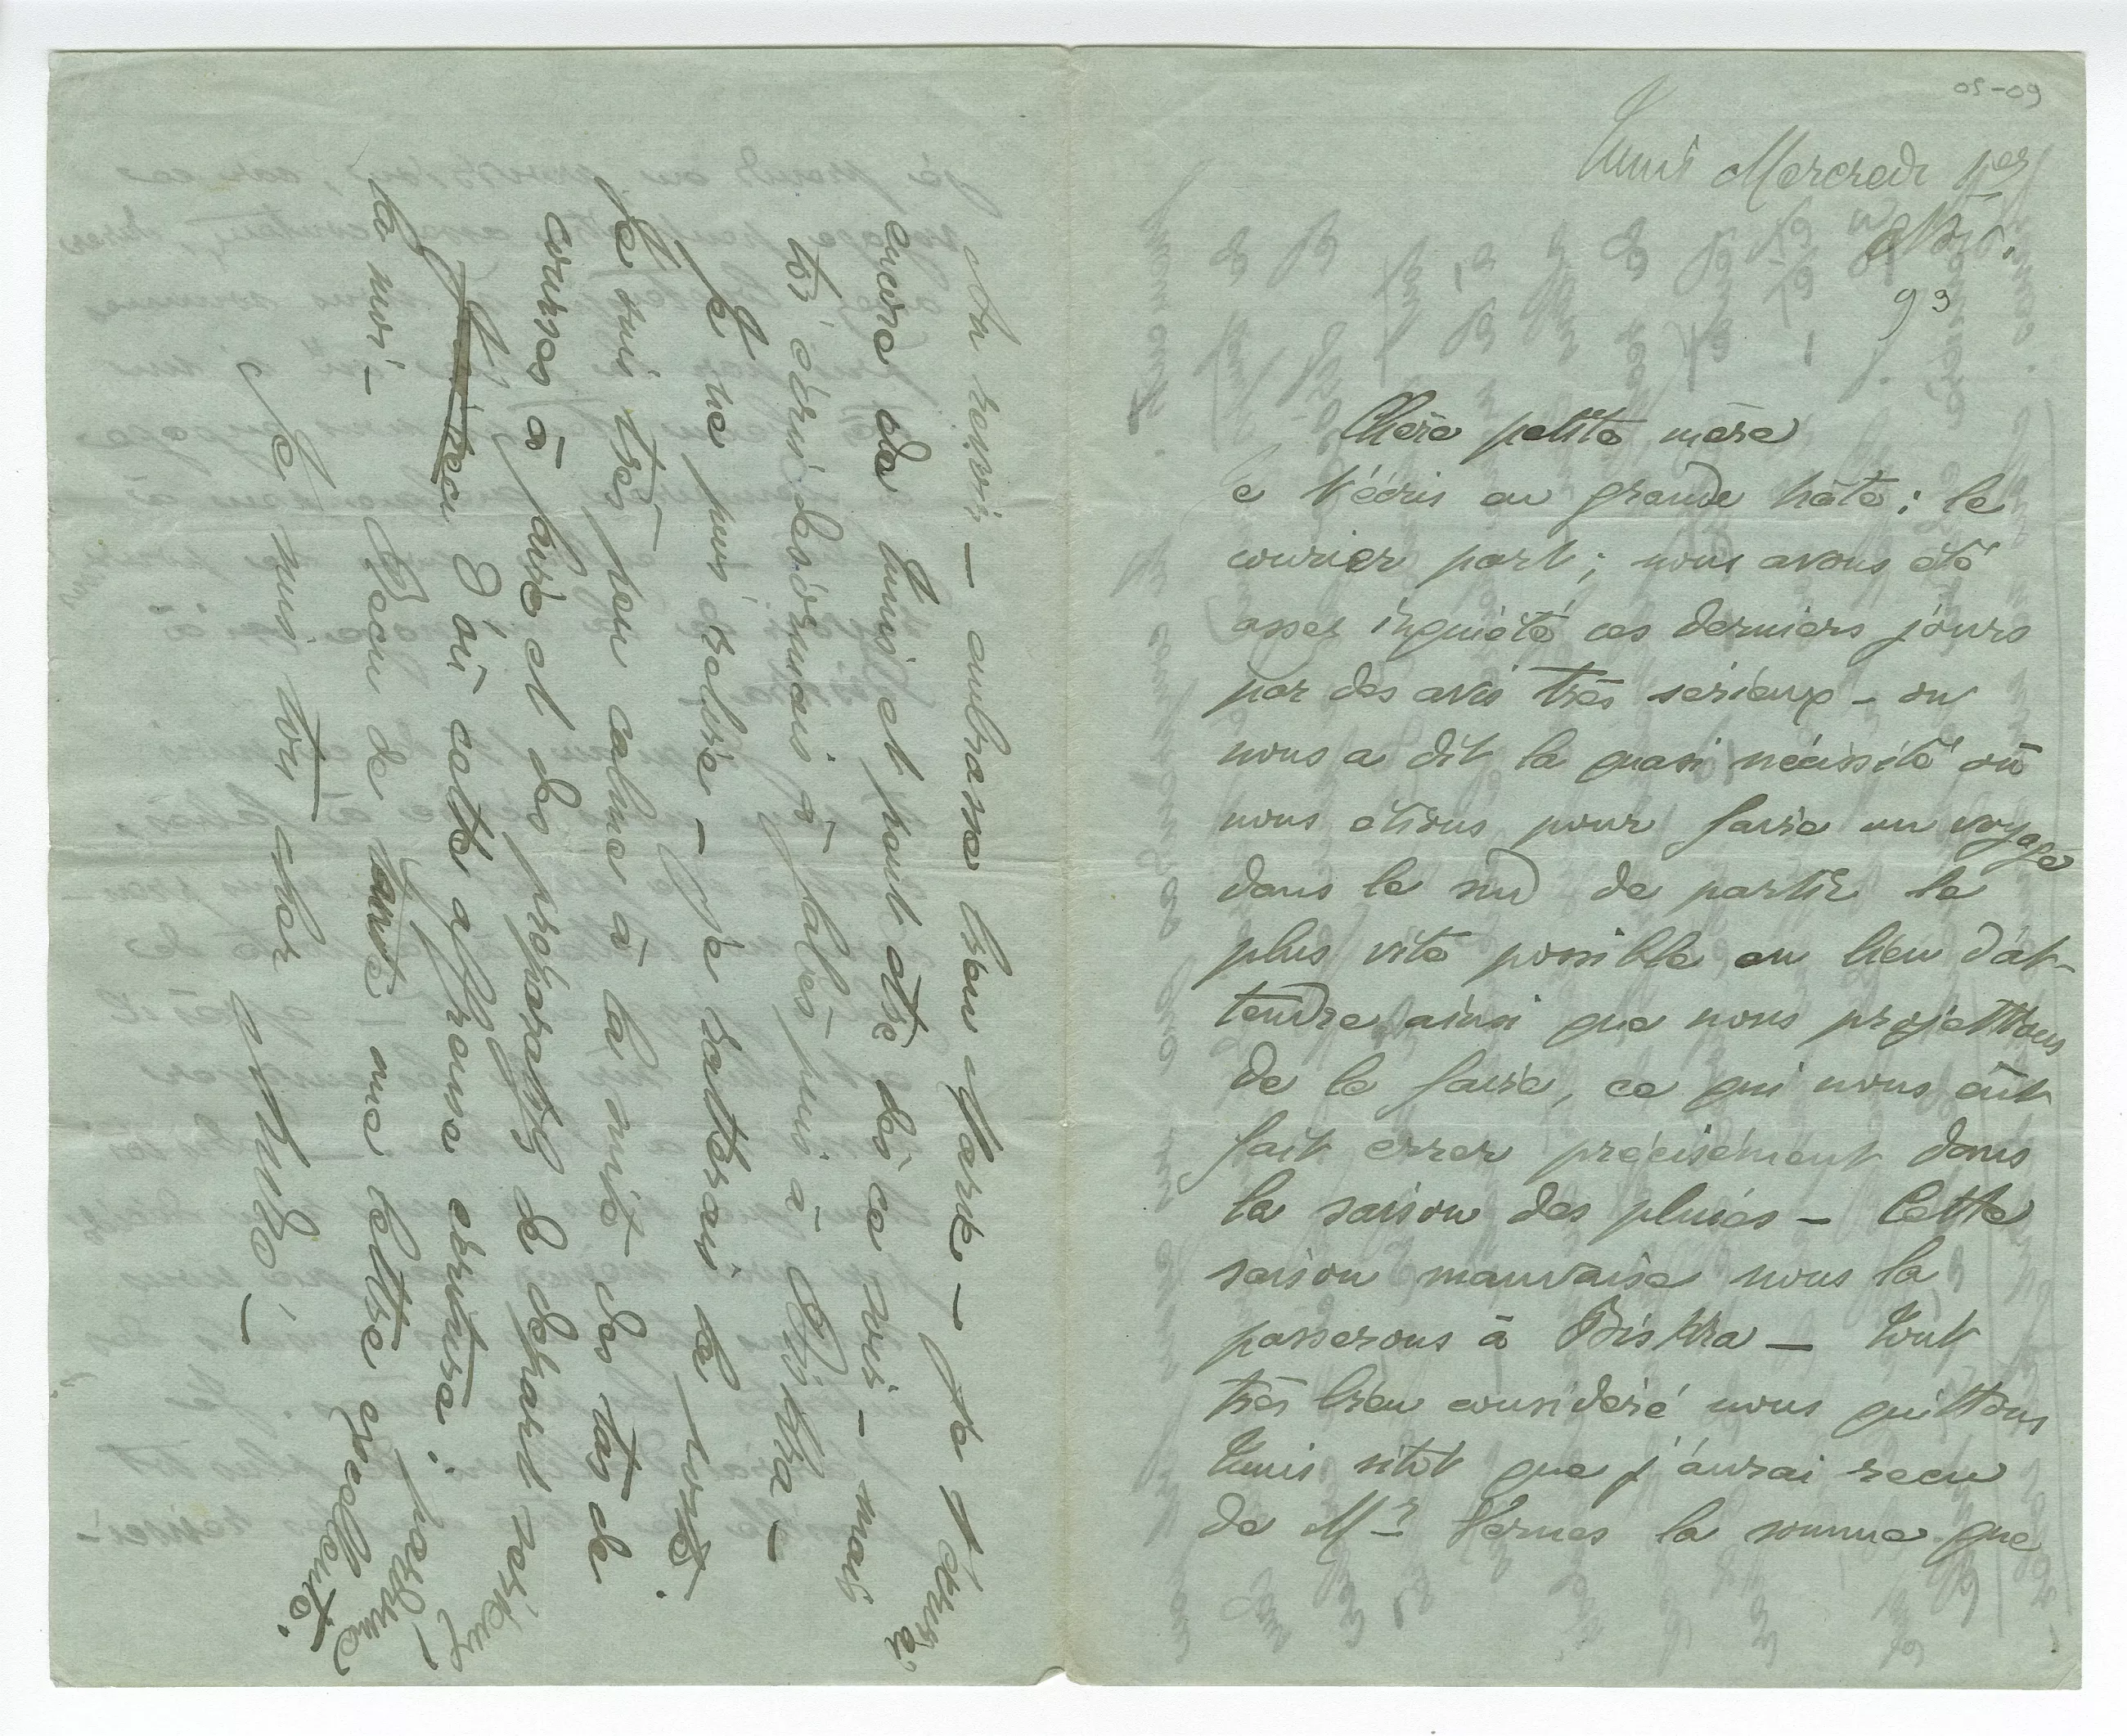 05-09
Tunis Mercredi 1er
Nbre.
93
Chère petite mère
Je t'écris en grande hâte ; le
courier part ; nous avons été
assez inquiété ces derniers jours
par des avis très sérieux - on
nous a dit la quasi nécessité où
nous étions pour faire un voyage
dans le sud de partir le
plus vite possible au lieu d'at-
tendre ainsi que nous projettions
de le faire, ce qui nous eût
fait errer précisément dans
la saison des pluies - Cette
saison mauvaise nous la
passerons à Biskra - Tout
très bien considéré nous quittons
Tunis sitôt que j'aurai reçu
de Mr Vernes la somme que
Au revoir - embrasse bien Marie - Je t'écrirai
encore de Tunis et peut être dès ce soir - mais
toi écris désormais à Gabès puis à Biskra -
Je ne puis relire - je sauterais la poste.
Je suis très peu calme à la suite des tas de
courses à faire et des préparatifs de départ sérieux
d'où cette affreuse écriture : pardonne
la moi - Reçu de tante une lettre excellente.
Je suis ton cher petit